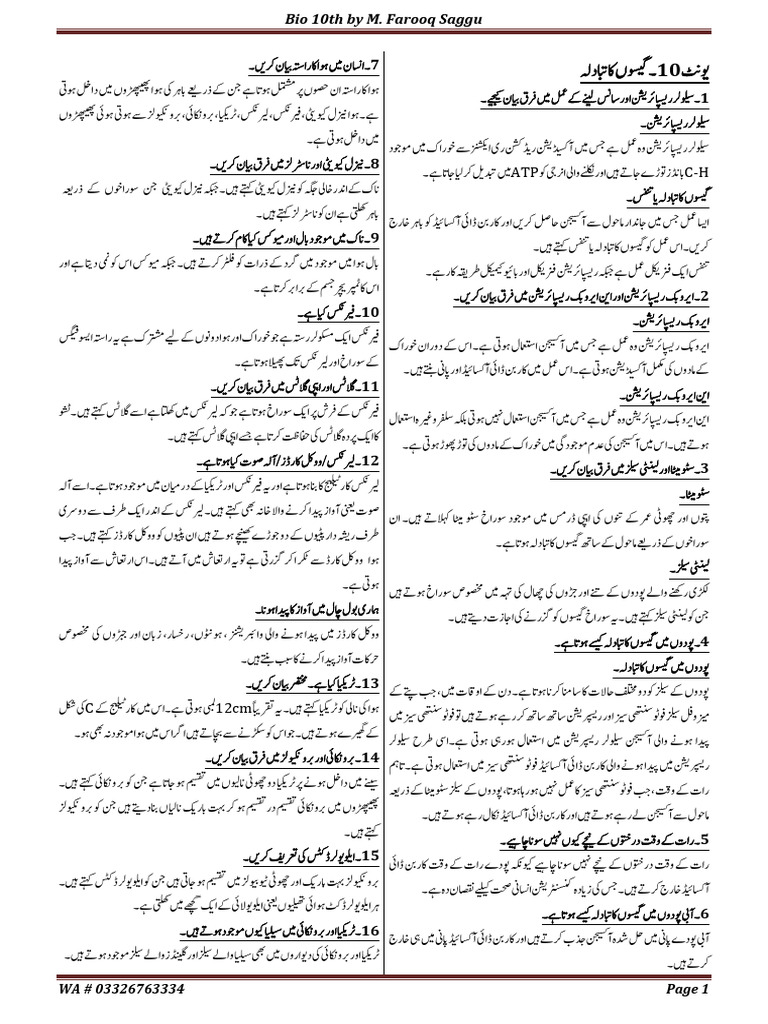 Bio 10th by M. Farooq Saggu
یونٹ 10۔ گیسوں کا تبادلہ
1۔ سیلولر ریسپائریشن اور سانس لینے کے عمل میں فرق بیان کیجیے۔
سیلولر ریسپائریشن۔
سیلولر ریسپائریشن وہ عمل ہے جس میں آکسیڈیشن ریڈکشن ری ایکشنز سے خوراک میں موجود
C-H بانڈز توڑے جاتے ہیں اور نکلنے والی انرجی کو ATP میں تبدیل کر لیا جاتا ہے۔
گیسوں کا تبادلہ یا تنفس۔
ایسا عمل جس میں جاندار ماحول سے آکسیجن حاصل کریں اور کاربن ڈائی آکسائیڈ کو باہر خارج
کریں۔ اس عمل کو گیسوں کا تبادلہ یا تنفس کہتے ہیں۔
تنفس ایک فزیکل عمل ہے جبکہ ریسپائریشن فزیکل اور بائیو کیمیکل طریقہ کار ہے۔
2۔ ایروبک ریسپائریشن اور این ایروبک ریسپائریشن میں فرق بیان کریں۔
ایروبک ریسپائریشن۔
ایروبک ریسپائریشن وہ عمل ہے جس میں آکسیجن استعمال ہوتی ہے۔ اس کے دوران خوراک
کے مادوں کی مکمل آکسیڈیشن ہوتی ہے۔ اس عمل میں کاربن ڈائی آکسائیڈ اور پانی بنتے ہیں۔
این ایروبک ریسپائریشن۔
این ایروبک ریسپائریشن وہ عمل ہے جس میں آکسیجن استعمال نہیں ہوتی بلکہ سلفر وغیرہ استعمال
ہوتے ہیں۔ اس میں آکسیجن کی عدم موجودگی میں خوراک کے مادوں کی توڑ پھوڑ ہوتی ہے۔
3۔ سٹومیٹا اور لینٹی سیلز میں فرق بیان کریں۔
سٹومیٹا۔
پتوں اور چھوٹی عمر کے تنوں کی اپی ڈرمس میں موجود سوراخ سٹومیٹا کہلاتے ہیں۔ ان
سوراخوں کے ذریعے ماحول کے ساتھ گیسوں کا تبادلہ ہوتا ہے۔
لینٹی سیلز۔
لکڑی رکھنے والے پودوں کے تنے اور جڑوں کی چھال کی تہہ میں مخصوص سوراخ ہوتے ہیں
جن کو لینٹی سیلز کہتے ہیں۔ یہ سوراخ گیسوں کو گزرنے کی اجازت دیتے ہیں۔
4۔ پودوں میں گیسوں کا تبادلہ کیسے ہوتا ہے۔
پودوں میں گیسوں کا تبادلہ۔
پودوں کے سیلز کو دو مختلف حالات کا سامنا کرنا ہوتا ہے۔ دن کے اوقات میں، جب پتے کے
میزوفل سیلز فوٹو سنتھی سیز اور ریسپریشن ساتھ ساتھ کر رہے ہوتے ہیں تو فوٹو سنتھی سیز میں
پیدا ہونے والی آکسیجن سیلولر ریسپریشن میں استعمال ہو رہی ہوتی ہے۔ اسی طرح سیلولر
ریسپریشن میں پیدا ہونے والی کاربن ڈائی آکسائیڈ فوٹو سنتھی سیز میں استعمال ہوتی ہے۔ تاہم
رات کے وقت، جب فوٹو سنتھی سیز کا عمل نہیں ہو رہا ہوتا، پودوں کے سیلز سٹومیٹا کے ذریعہ
ماحول سے آکسیجن لے رہے ہوتے ہیں اور کاربن ڈائی آکسائیڈ نکال رہے ہوتے ہیں۔
5۔ رات کے وقت درختوں کے نیچے کیوں نہیں سونا چاہیے۔
رات کے وقت درختوں کے نیچے نہیں سونا چاہیے کیونکہ پودے رات کے وقت کاربن ڈائی
آکسائیڈ خارج کرتے ہیں۔ جس کی زیادہ کنسنٹریشن انسانی صحت کیلیے نقصان دہ ہے۔
6۔ آبی پودوں میں گیسوں کا تبادلہ کیسے ہوتا ہے۔
آبی پودے پانی میں حل شدہ آکسیجن جذب کرتے ہیں اور کاربن ڈائی آکسائیڈ پانی میں ہی خارج
کرتے ہیں۔
7۔ انسان میں ہوا کا راستہ بیان کریں۔
ہوا کا راستہ ان حصوں پر مشتمل ہوتا ہے جن کے ذریعے باہر کی ہوا پھیپھڑوں میں داخل ہوتی
ہے۔ ہوا نیزل کیویٹی، فیرنکس، لیرنکس، ٹریکیا، برونکائی، برونکیولز سے ہوتی ہوئی پھیپھڑوں
میں داخل ہوتی ہے۔
8۔ نیزل کیویٹی اور ناسٹرلز میں فرق بیان کریں۔
ناک کے اندر خالی جگہ کو نیزل کیویٹی کہتے ہیں۔ جبکہ نیزل کیویٹی جن سوراخوں کے ذریعہ
باہر کھلتی ہے ان کو ناسٹرلز کہتے ہیں۔
9۔ ناک میں موجود بال اور میوکس کیا کام کرتے ہیں۔
بال ہوا میں موجود میں گرد کے ذرات کو فلٹر کرتے ہیں۔ جبکہ میوکس اس کو نمی دیتا ہے اور
اس کا ٹمپریچر جسم کے برابر کرتا ہے۔
10۔ فیرنکس کیا ہے۔
فیرنکس ایک مسکولر رستہ ہے جو خوراک اور ہوا دونوں کے لیے مشترک ہے یہ راستہ ایسوفیگس
کے سوراخ اور لیرنکس تک پھیلا ہوتا ہے۔
11۔ گلاٹس اور اپی گلاٹس میں فرق بیان کریں۔
فیرنکس کے فرش پر ایک سوراخ ہوتا ہے جو کہ لیرنکس میں کھلتا ہے اسے گلاٹس کہتے ہیں۔ ٹشو
کا ایک پردہ گلاٹس کی حفاظت کرتا ہے جسے اپی گلاٹس کہتے ہیں۔
12۔ لیرنکس/ووکل کارڈز/آلہ صوت کیا ہوتا ہے۔
لیرنکس کارٹیلیج کا بنا ہوتا ہے اور یہ فیرنکس اور ٹریکیا کے درمیان میں موجود ہوتا ہے۔ اسے آلہ
صوت یعنی آواز پیدا کرنے والا خانہ بھی کہتے ہیں۔ لیرنکس کے اندر ایک طرف سے دوسری
طرف ریشہ دار پٹیوں کے دو جوڑے کھینچے ہوتے ہیں ان پٹیوں کو ووکل کارڈز کہتے ہیں۔ جب
ہوا ووکل کارڈ سے ٹکرا کر گزرتی ہے تو یہ ارتعاش میں آتے ہیں۔ اس ارتعاش سے آواز پیدا
ہوتی ہے۔
ہماری بول چال میں آواز کا پیدا ہونا۔
ووکل کارڈز میں پیدا ہونے والی وائبریشنز ، ہونٹوں، رخسار، زبان اور جبڑوں کی مخصوص
حرکات آواز پیدا کرنے کا سبب بنتے ہیں۔
13۔ ٹریکیا کیا ہے۔ مختصر بیان کریں۔
ہوا کی نالی کو ٹریکیا کہتے ہیں۔ یہ تقریباً 12cm لمبی ہوتی ہے۔ اس میں کارٹیلیج کے C کی شکل
کے گھیرے ہوتے ہیں۔ جو اس کو سکڑنے سے بچاتے ہیں اگر اس میں ہوا موجود نہ بھی ہو۔
14۔ برونکائی اور برونکیولز میں فرق بیان کریں۔
سینے میں داخل ہونے پر ٹریکیا دو چھوٹی نالیوں میں تقسیم ہو جاتا ہے جن کو برونکائی کہتے ہیں۔
پھیپھڑوں میں برونکائی تقسیم در تقسیم ہو کر بہت باریک نالیاں بنا دیتا ہیں جن کو برونکیولز
کہتے ہیں۔
15۔ ایلویولر ڈکٹس کی تعریف کریں۔
برونکیولز بہت باریک اور چھوٹی ٹیوبیولز میں تقسیم ہو جاتی ہیں جن کو ایلویولر ڈکٹس کہتے ہیں۔
ہر ایلویولر ڈکٹ ہوائی تھیلیوں یعنی ایلویولائی کے ایک گچھے میں کھلتی ہے۔
16۔ ٹریکیا اور برونکائی میں سیلیا کیوں موجود ہوتے ہیں۔
ٹریکیا اور برونکائی کی دیواروں میں بھی سیلیا والے سیلز اور گلینڈز والے سیلز موجود ہوتے ہیں۔
WA # 03326763334
Page 1